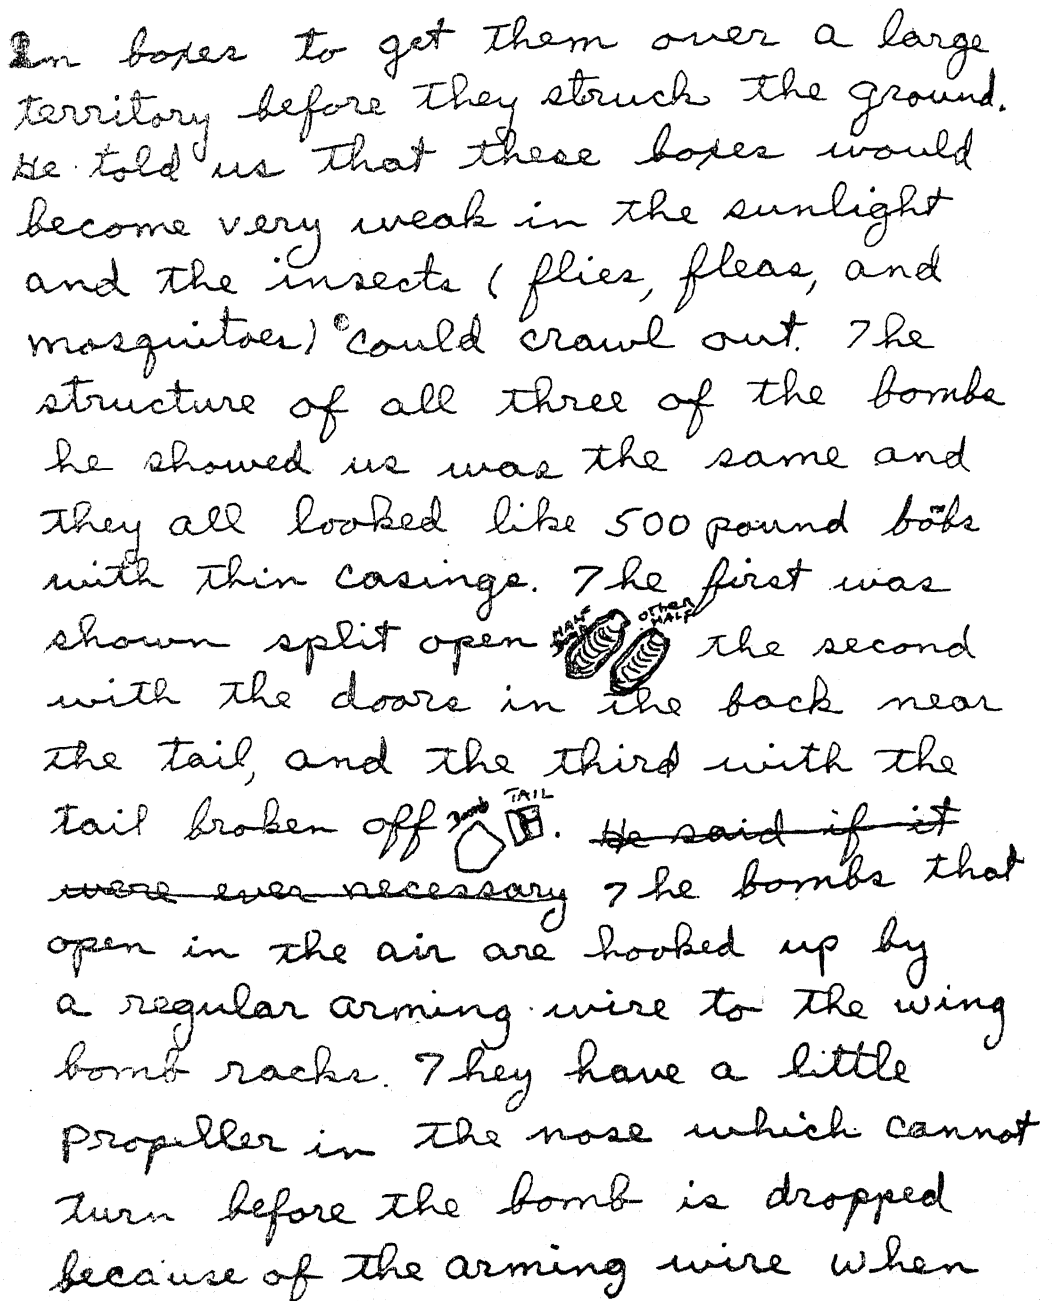 In boxes to get them over a large
territory before they struck the ground.
He told us that these boxes would
become very weak in the sunlight
and the insects ( flies, fleas, and
mosquitoes) could crawl out. The
structure of all three of the bombs
he showed us was the same and
they all looked like 500 pound bombs
with thin casings. The first was
shown split open HALF OTHER HALF the second
with the doors in the back near
the tail, and the third with the
tail broken off Bomb TAIL. He said if it
were ever necessary The bombs that
open in the air are hooked up by
a regular arming wire to the wing
bomb racks. They have a little
propeller in the nose which cannot
turn before the bomb is dropped
because of the arming wire when